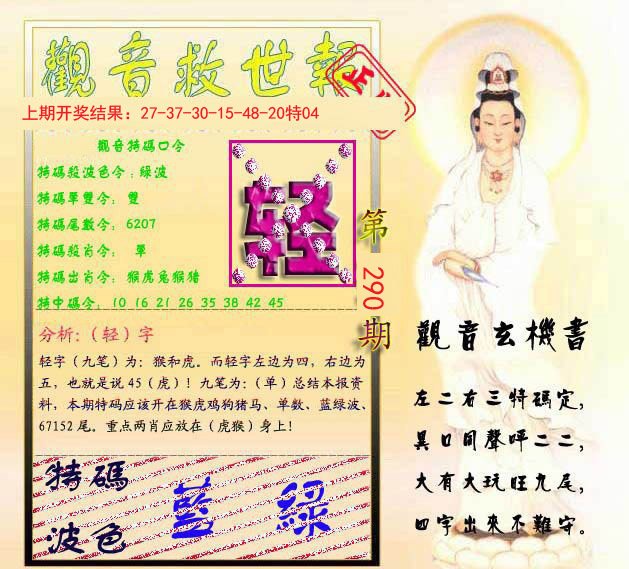 觀音救世報
上期开奖结果：27-37-30-15-48-20特04
觀音特碼口令
特碼殺波色令：綠波
特碼單雙令： 雙
特碼尾數令： 6207
特碼殺肖令： 單
特碼出肖令： 猴虎兔猴猪
特中碼令： 10 16 21 26 35 38 42 45
轻
第
290
期
分析:（轻）字
轻字（九笔）为：猴和虎。而轻字左边为四，右边为
五，也就是说 45（虎）！九笔为：（单）总结本报资
料，本期特码应该开在猴虎鸡狗猪马、单数、蓝绿波、
67152 尾。重点两肖应放在（虎猴）身上!
特碼
波色
藍 綠
觀音玄機書
左二右三特碼定，
異口同聲呼二二，
大有大玩旺九尾，
四字出來不難守。